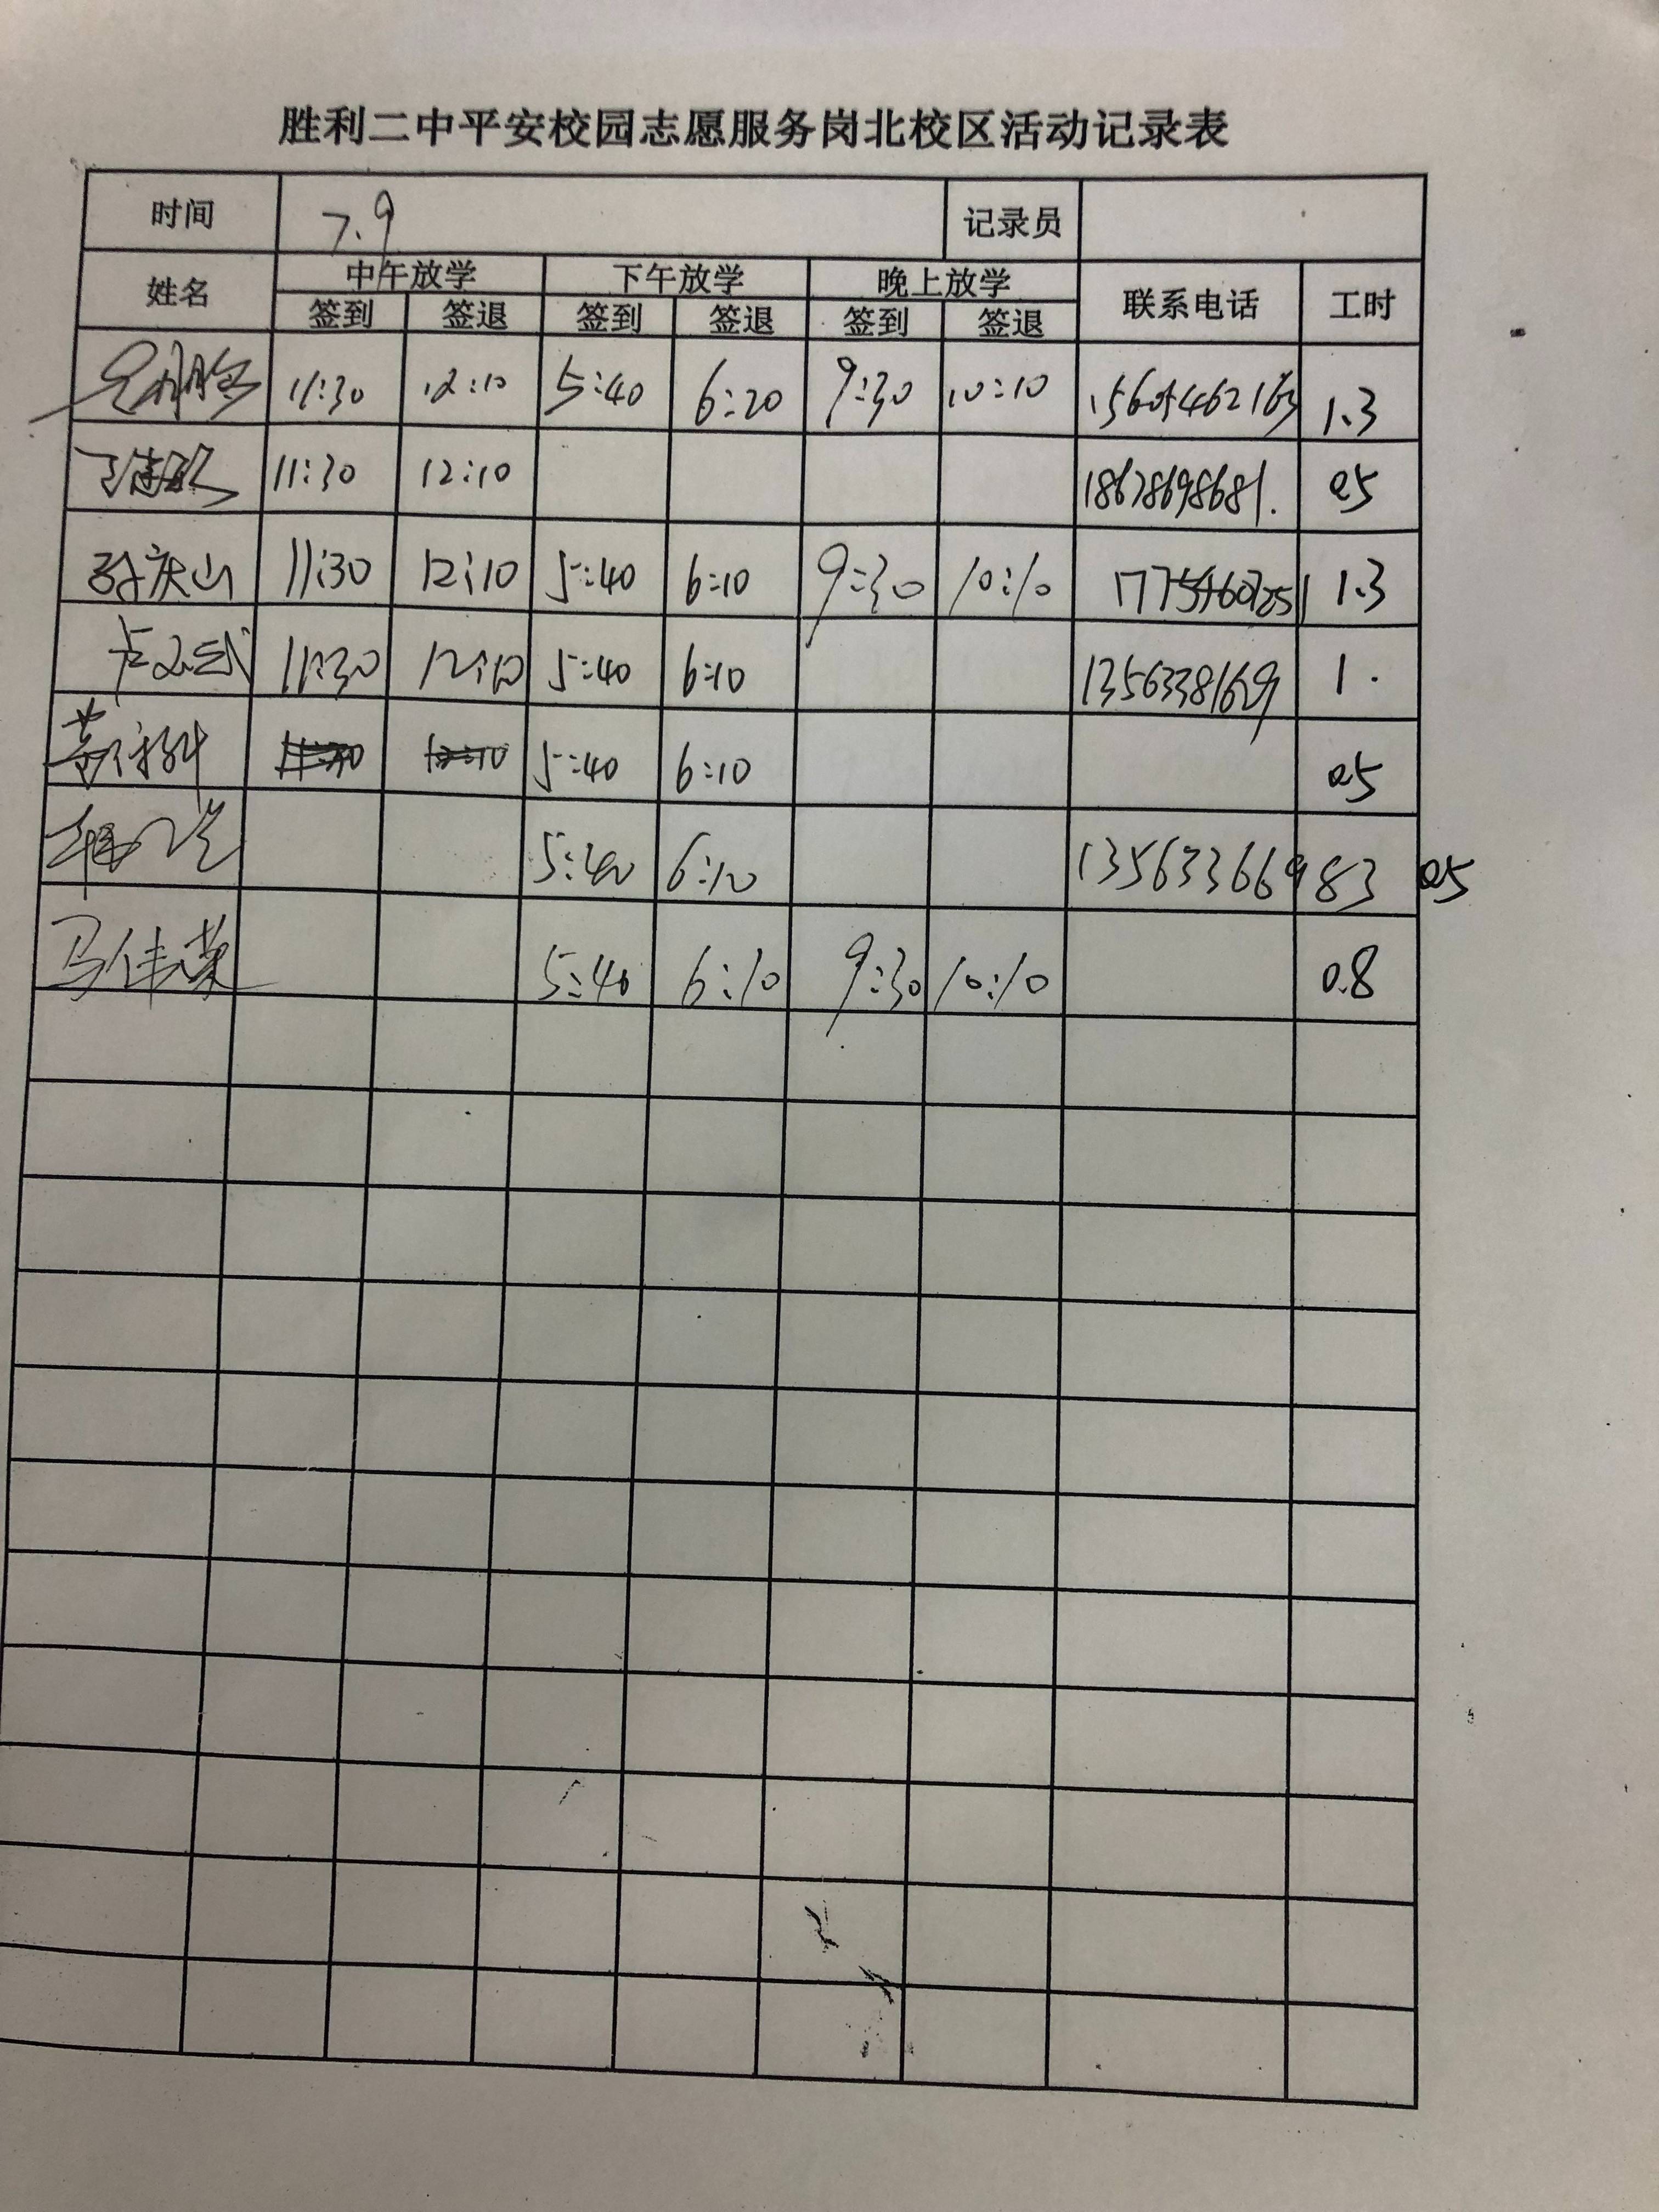 胜利二中平安校园志愿服务岗北校区活动记录表
时间 7.9 记录员
姓名 中午放学 下午放学 晚上放学 联系电话 工时
签到 签退 签到 签退 签到 签退
11:30 12:10 5:40 6:20 9:30 10:10 15605462163 1.3
11:30 12:10 18678698681. 0.5
孙庆山 11:30 12:10 5:40 6:10 9:30 10:10 1.3
11:30 12:10 5:40 6:10 13563381629 1.
5:40 6:10 0.5
5:40 6:10 13563366983 0.5
马佳荣 5:40 6:10 9:30 10:10 0.8